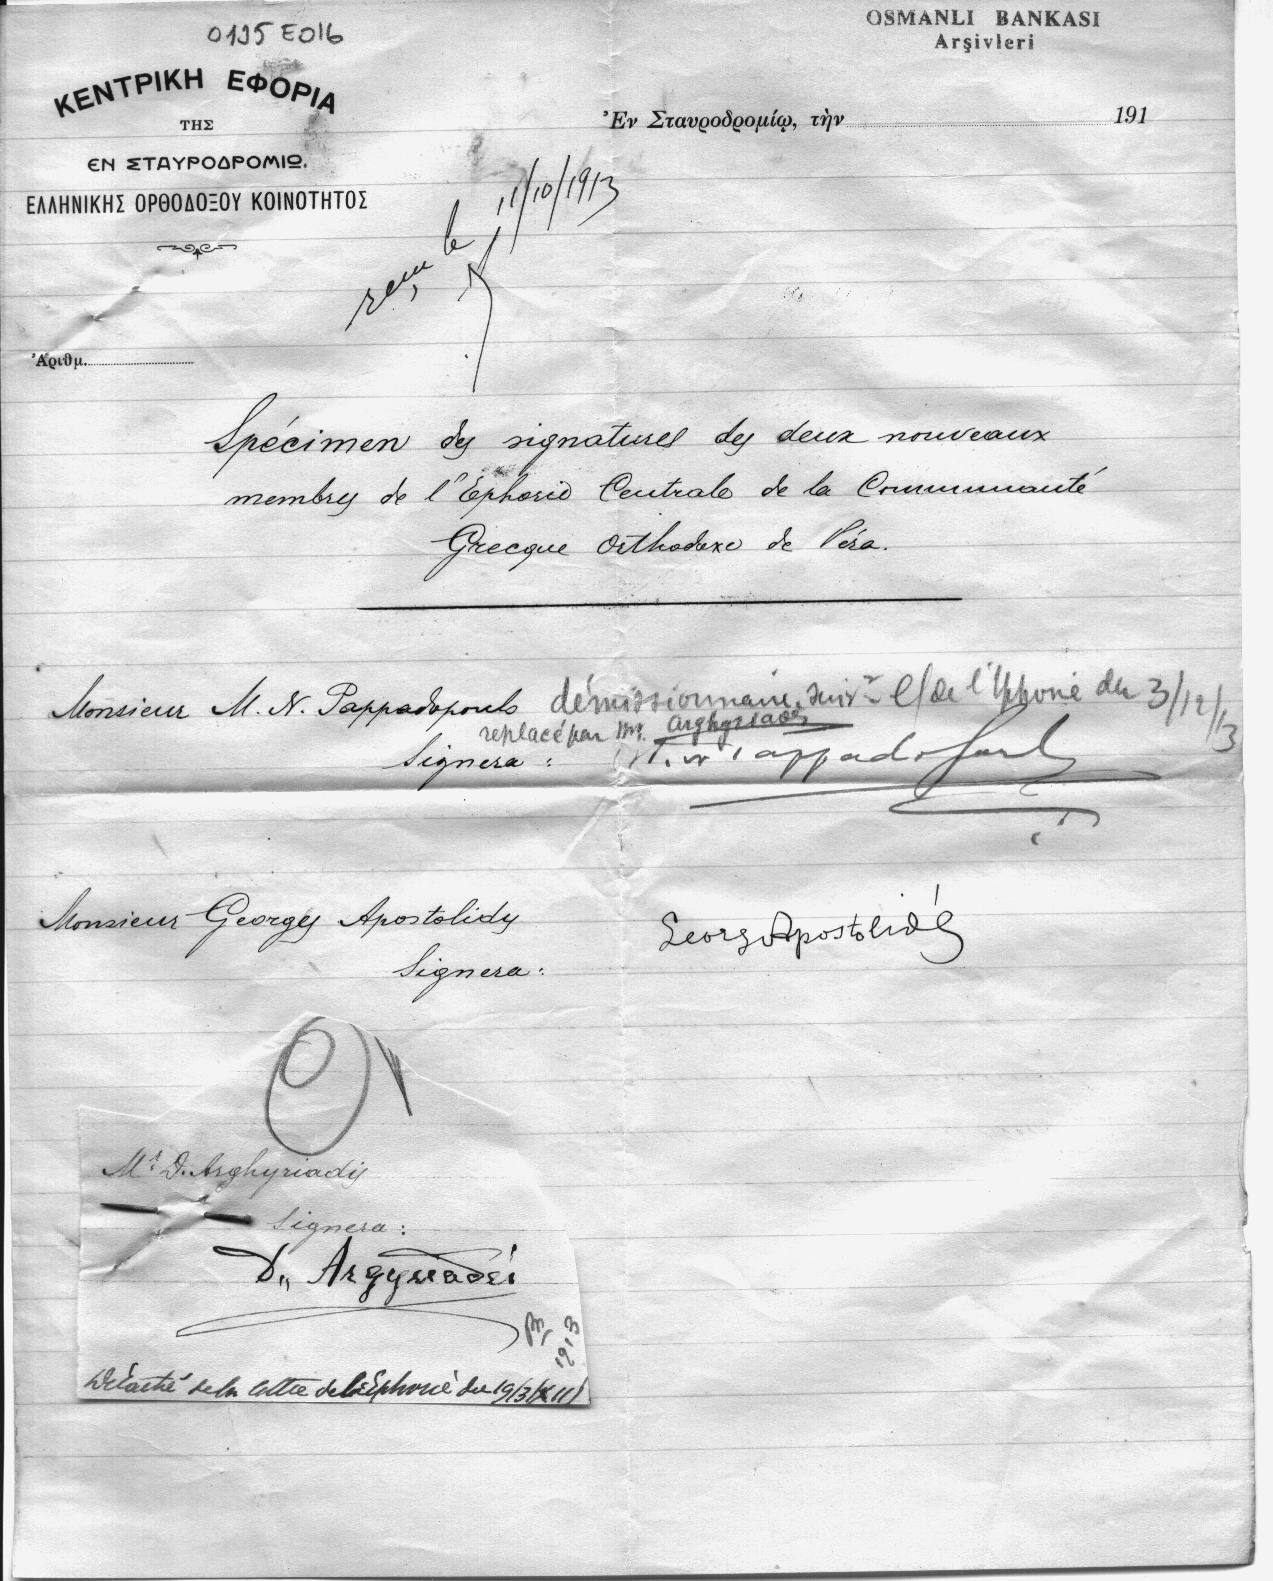 0195 E016
OSMANLI BANKASI
Arşivleri
ΚΕΝΤΡΙΚΗ ΕΦΟΡΙΑ
ΤΗΣ
ΕΝ ΣΤΑΥΡΟΔΡΟΜΙΩ.
ΕΛΛΗΝΙΚΗΣ ΟΡΘΟΔΟΞΟΥ ΚΟΙΝΟΤΗΤΟΣ
Ἐν Σταυροδρομίῳ, τὴν 191
reçu le 11/10/1913
Ἀριθμ.
Spécimen des signatures des deux nouveaux
membres de l'Ephorie Centrale de la Communauté
Grecque Orthodoxe de Péra.
Monsieur M. N. Pappadopoulo démissionnaire, suivt l/ de l'Ephorie du 3/12/13
replacé par Mr. Arghyriadès
Signera :
Monsieur Georges Apostolidès Georg Apostolidès
Signera :
Mr D. Arghyriadis
Signera :
D. Argyriadei
1913
Détaché de la lettre de l'Ephorie du 19/3/XII